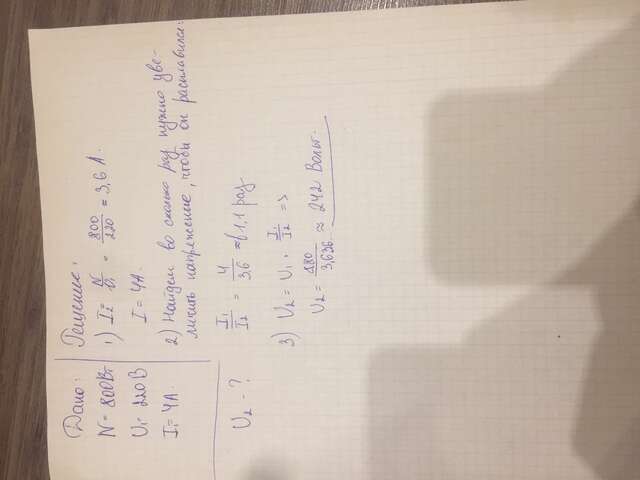 Дано:
N = 800Вт
U₁ = 220В
I₁ = 4А.
U₂ - ?
Решение:
1) I₂ = N/U₁ = 800/220 = 3,6 А.
I = 4А.
2) Найдем во сколько раз нужно уве-
личить напряжение, чтобы он расплавился:
I₁/I₂ = 4/3,6 ≈ в 1,1 раз
3) U₂ = U₁ · I₁/I₂ =>
U₂ = 880/3,636 ≈ 242 Вольт.